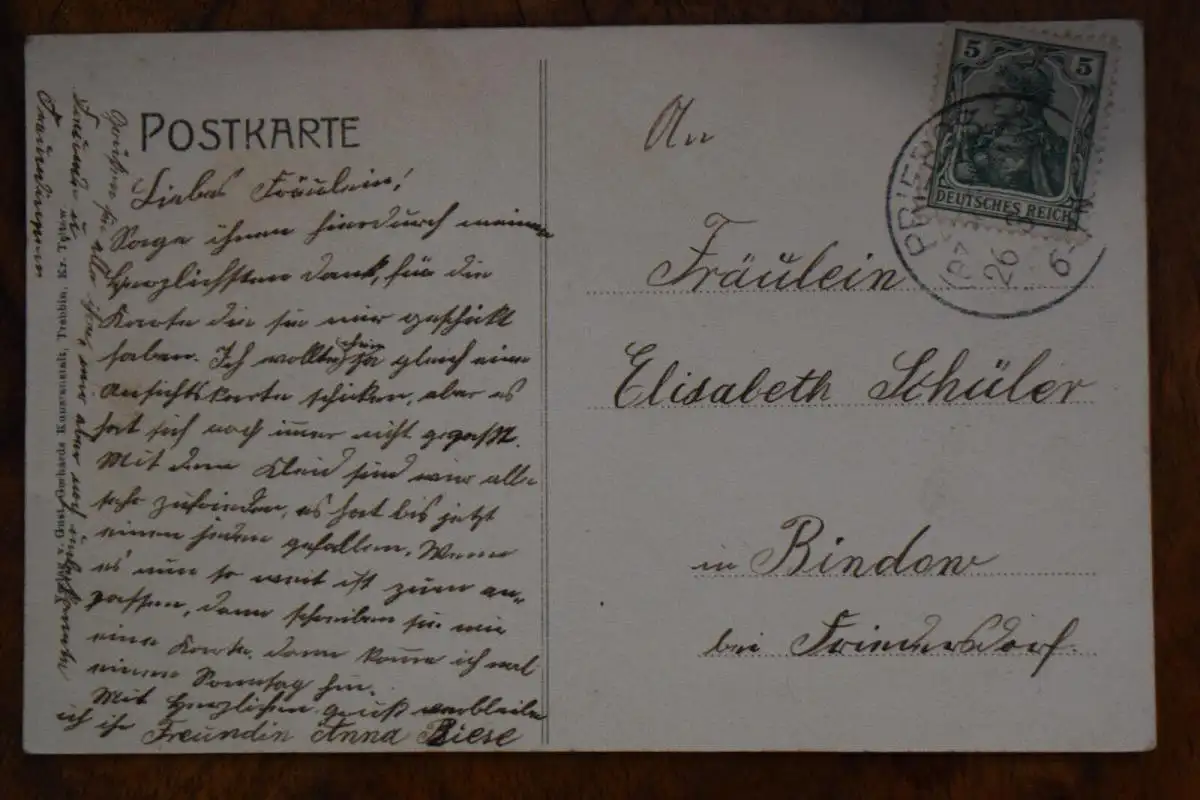 POSTKARTE
Liebes Fräulein!
Sage ihnen hierdurch meinen
herzlichsten Dank, für die
Karte die sie mir geschikt
haben. Ich wollte schon ja gleich eine
Ansichtskarte schicken, aber es
hat sich noch immer nicht gepaßt.
Mit dem Kleid sind wir alle
sehr zufrieden, es hat bis jetzt
einen jeden gefallen. Wenn
es nun so weit ist zum an-
passen, dann schreiben sie mir
eine Karte, dann komme ich mal
einen Sonntag hin.
Mit Herzlichen gruß verbleibe
ich ihr Freundin Anna Riese
Grüßen sie alle mir aber noch unbekannte
Freunde u.
Freundinnen
Gebhards Kunstanstalt, Trebbin, Kr. Teltow
An
Fräulein
Elisabeth Schüler
in Bindow
bei Friedersdorf.
5 5
DEUTSCHES REICH
PRIEROS
26
6-7N